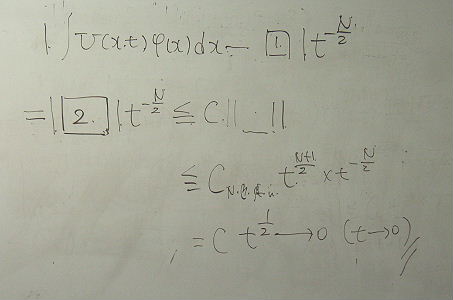 | ∫ U(x,t) φ(x) dx − [1.] | t^{-N/2}
= | [2.] | t^{-N/2} ≦ C || .. ||
≦ C_N t^{\frac{N+1}{2}} × t^{-N/2}
= C t^{1/2} → 0 (t → 0) //